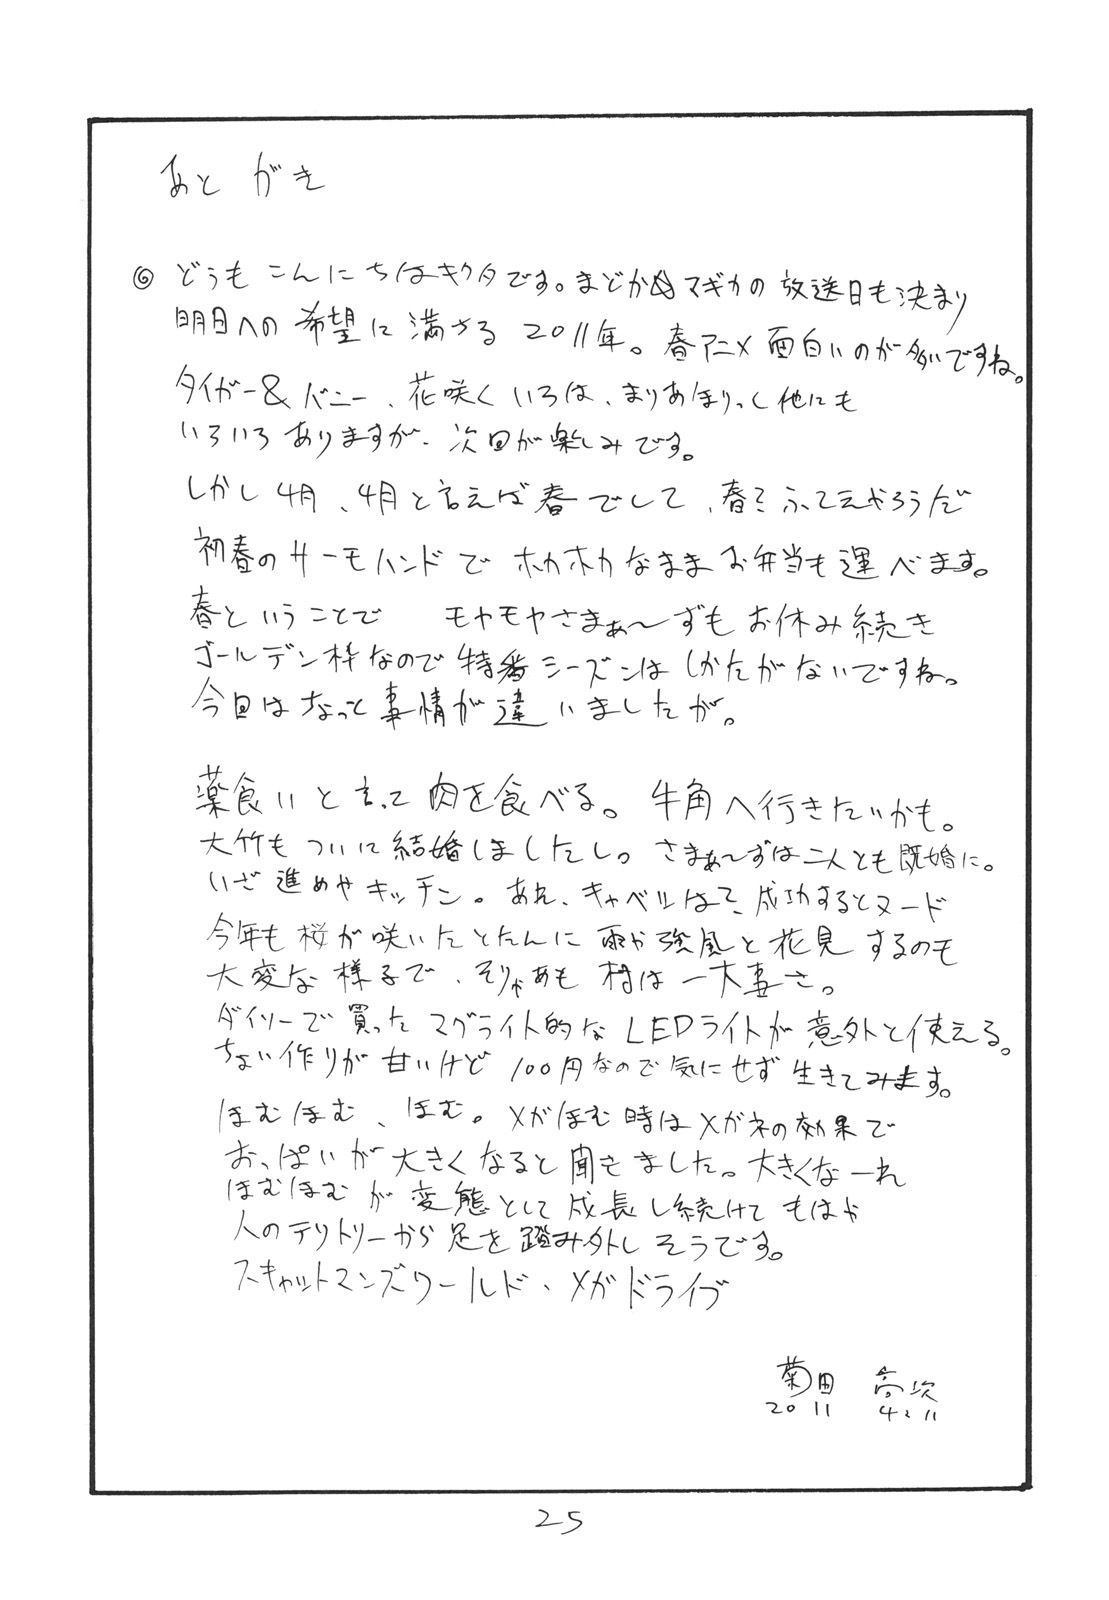 あとがき
◎ どうもこんにちはキクタです。まどか☆マギカの放送日も決まり
明日への希望に満ちる 2011年。春アニメ面白いのが多いですね。
タイガー&バニー、花咲くいろは、まりあほりっく他にも
いろいろありますが、次回が楽しみです。
しかし4月、4月と言えば春でして、春で
初春のサーモハンドでホカホカなままお弁当も運べます。
春ということで モヤモヤさまぁ〜ずもお休み続き
ゴールデン枠なので特番シーズンはしかたがないですね。
今回はちょっと事情が違いましたが。
薬食いと言って肉を食べる。牛角へ行きたいかも。
大竹もついに結婚しましたし。さまぁ〜ずは二人とも既婚に。
いざ進めやキッチン。あれ、キャベツはて、成功するとヌード
今年も桜が咲いたとたんに雨や強風と花見するのも
大変な様子で、そりゃあも村は一大事さ。
ダイソーで買ったマグライト的なLEDライトが意外と使える。
ちょい作りが甘いけど100円なので気にせず生きてみます。
ほむほむ、ほむ。メガほむ時はメガネの効果で
おっぱいが大きくなると聞きました。大きくなーれ
ほむほむが変態として成長し続けてもはや
人のテリトリーから足を踏み外しそうです。
スキャットマンズワールド、メガドライブ
菊田 高次
2011 4.11
25